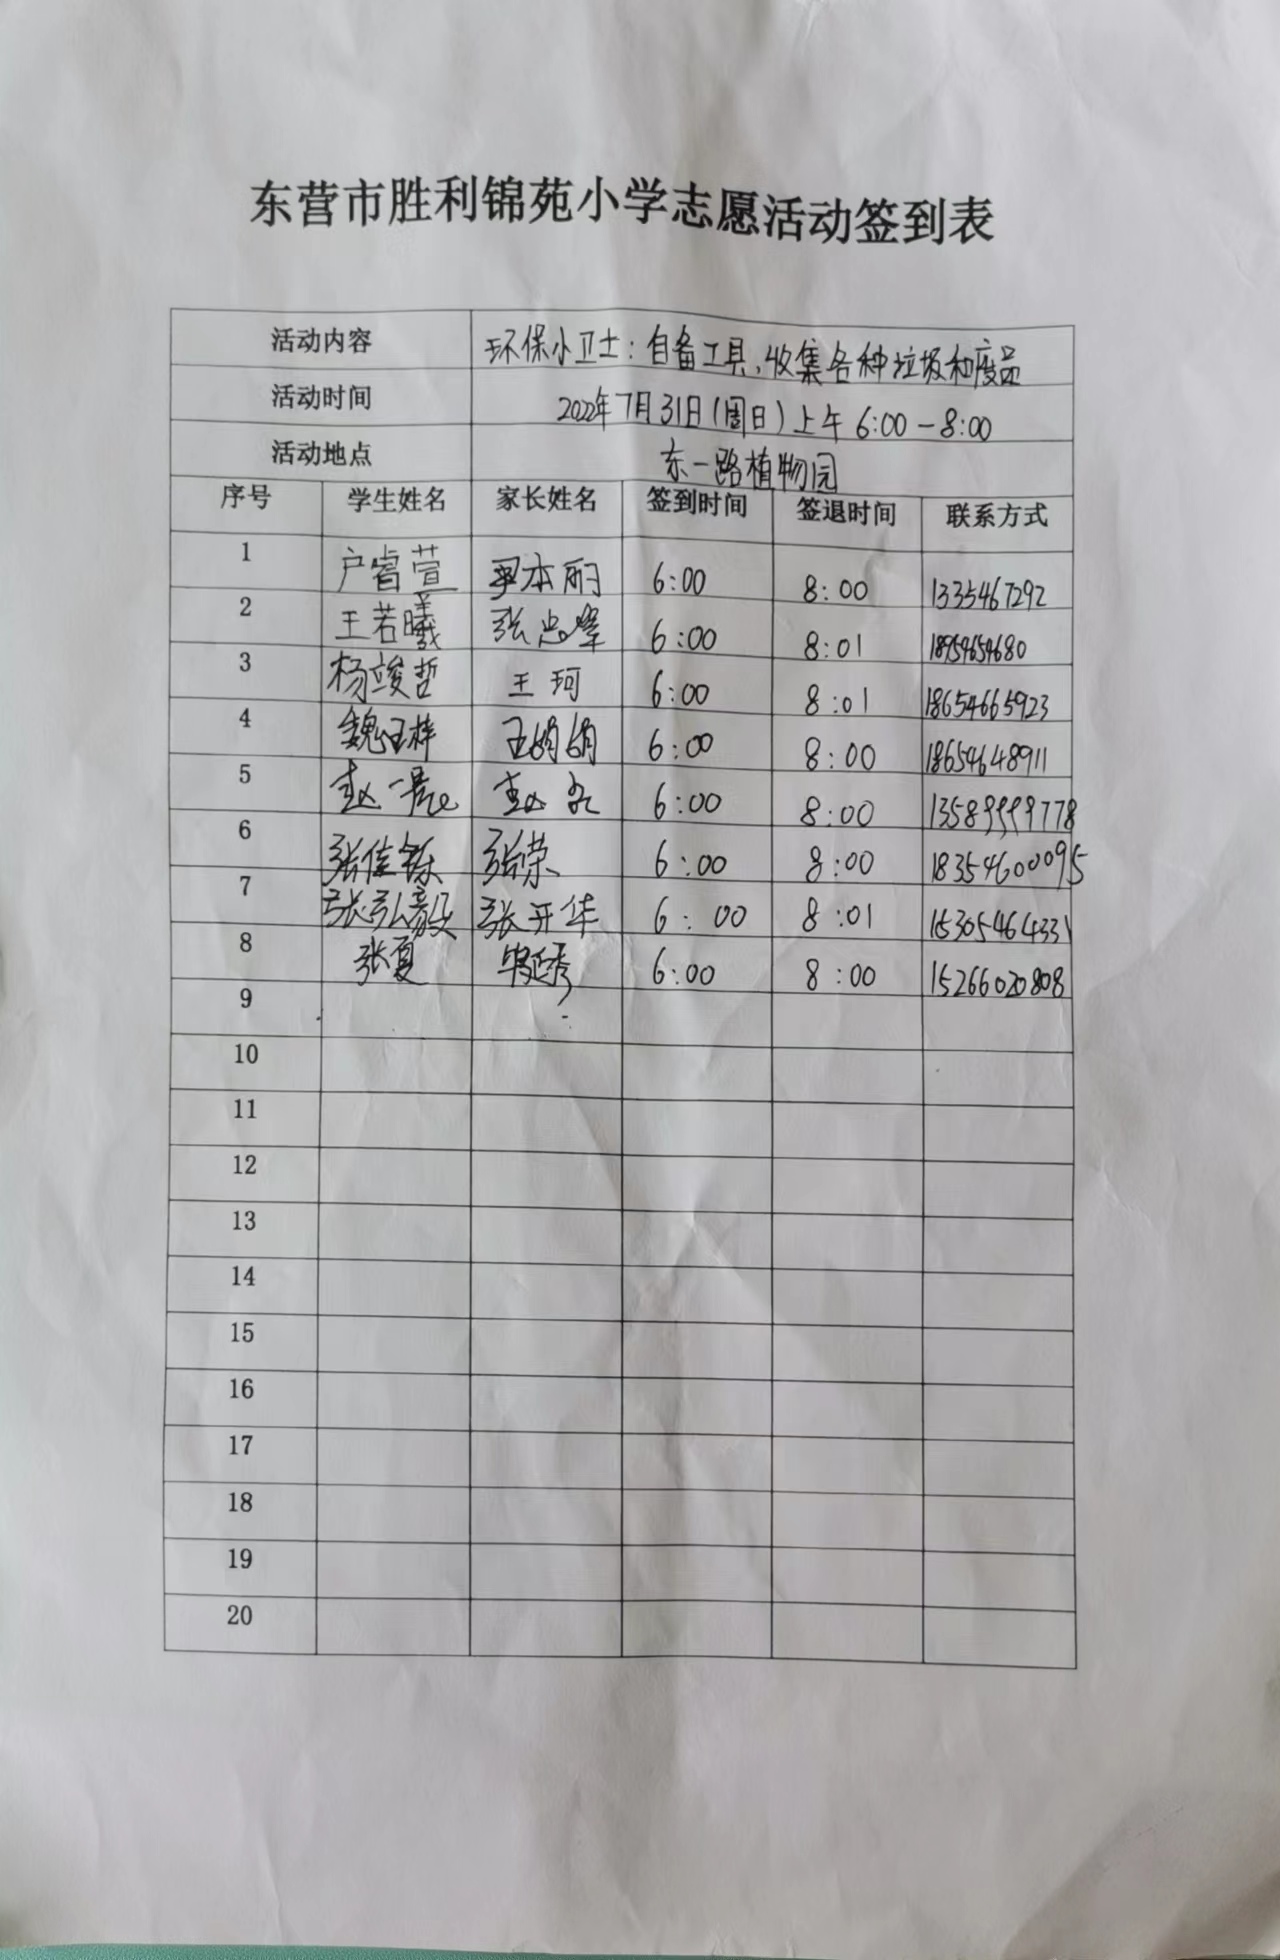 东营市胜利锦苑小学志愿活动签到表
活动内容 环保小卫士：自备工具，收集各种垃圾和废品
活动时间 2022年7月31日（周日）上午 6:00－8:00
活动地点 东一路植物园
序号 学生姓名 家长姓名 签到时间 签退时间 联系方式
1 户睿萱 本丽 6:00 8:00 1335467292
2 王若曦 张忠峰 6:00 8:01 18954654680
3 杨竣哲 王珂 6:00 8:01 18654665923
4 魏玉梓 王娟娟 6:00 8:00 18654648911
5 赵一 赵 6:00 8:00 13589999778
6 张佳铄 张荣 6:00 8:00 18354600095
7 张弘毅 张开华 6:00 8:01 15305464331
8 张夏 6:00 8:00 15266020808
9
10
11
12
13
14
15
16
17
18
19
20